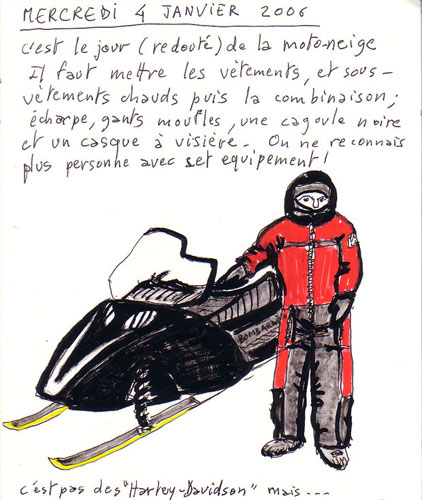 MERCREDI 4 JANVIER 2006
c'est le jour (redouté) de la moto-neige
Il faut mettre les vêtements, et sous-
vêtements chauds puis la combinaison;
écharpe, gants moufles, une cagoule noire
et un casque à visière. On ne reconnais
plus personne avec set equipement!
BOMBARD
c'est pas des "Harley-Davidson" mais ---